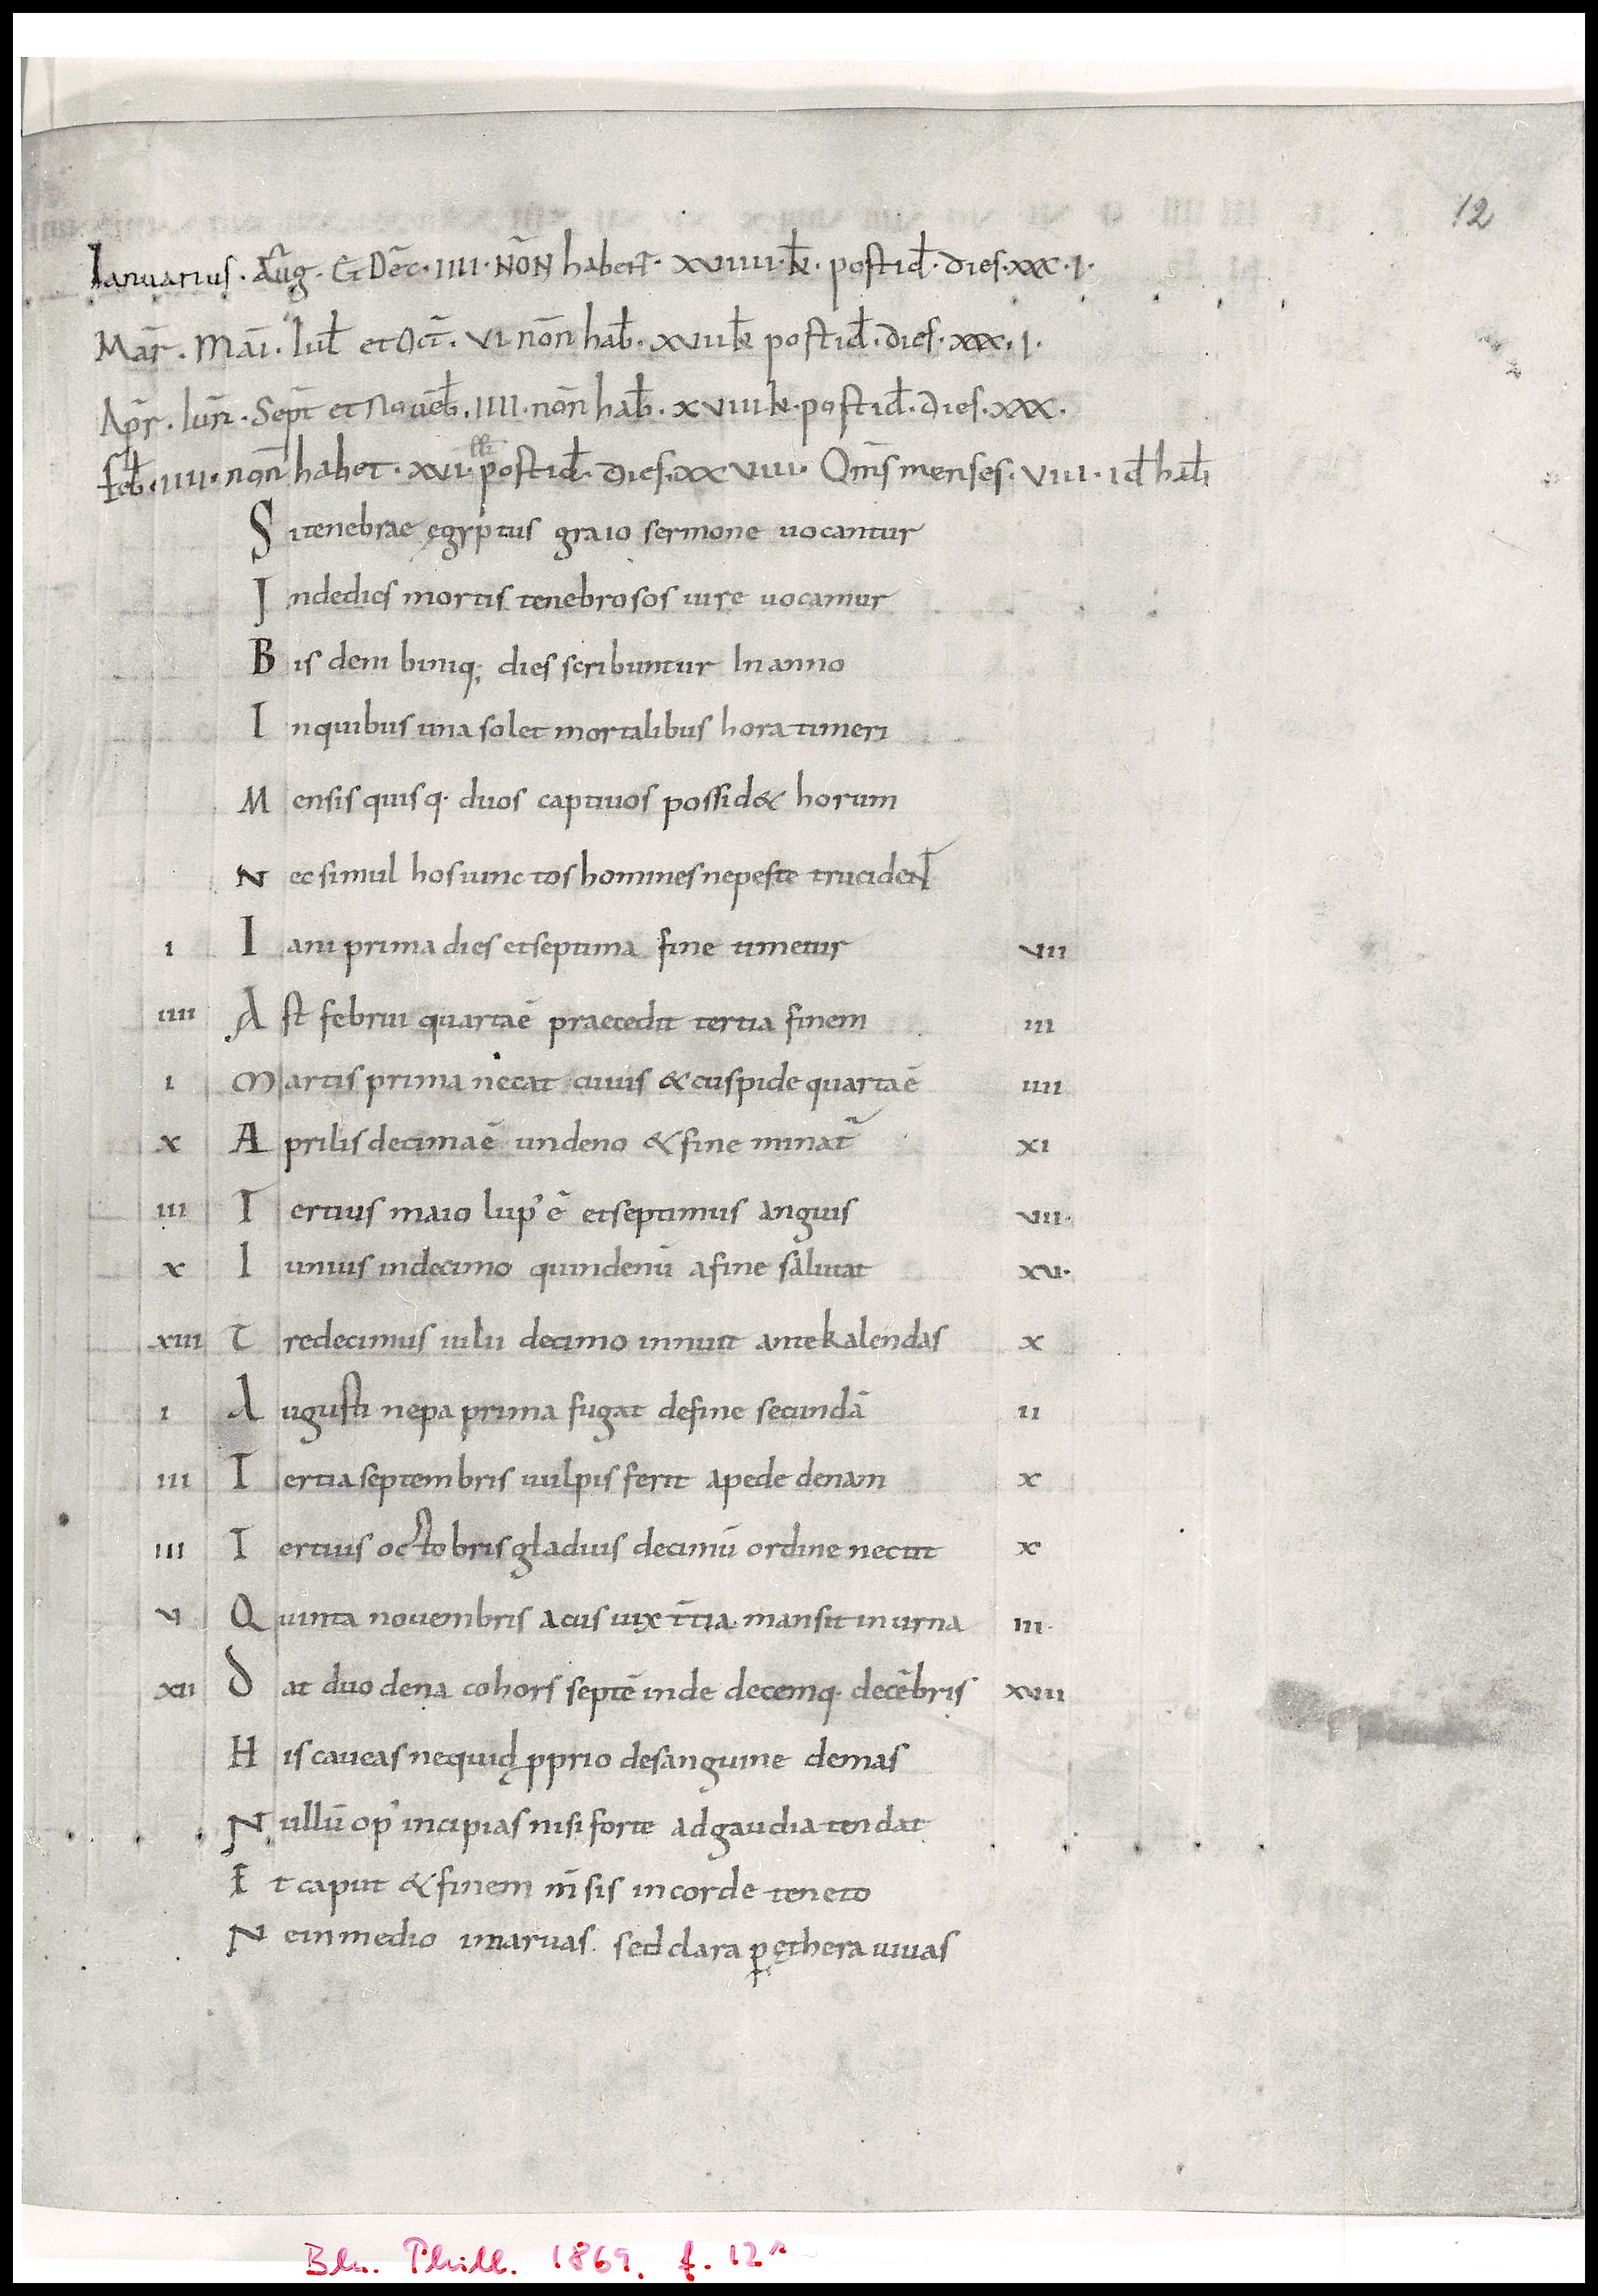 12
Ianuarius · Aug̅ · Et Dec̅ · IIII · NON̅ habent̅ · XVIIII · kł · post id̅ · dies · XXX · I ·
Mar̅ · Mai̅ · Iuł et Oct̅ · VI non̅ hab̅ · XVII kł post id̅ · dies · XXX · I ·
Apr̅ · Iun̅ · Sept̅ et Noueb̅ · IIII · non̅ hab̅ · XVIII kł · post id̅ · dies · XXX ·
Feb̅ · IIII · non̅ habet · XVI · post id̅ · dies · XXVIII · Om̅s menses · VIII · id̅ hab̅
S itenebrae ęgyptus graio sermone uocantur
I ndedies mortis tenebrosos iure uocamur
B is deni biniq; dies scribuntur In anno
I nquibus una solet mortalibus hora timeri
M ensis quisq· duos captiuos possid& horum
N ec simul hos iunctos homines nepeste trucident̅
I I ani prima dies et septima fine timetur VII
IIII A st februi quarta ē praecedit tertia finem III
I M artis prima necat cuius & cuspide quarta ē IIII
X A prilis decima ē undeno & fine minat̅ XI
III T ertius maio lup' ē et septimus anguis VII·
X I unius indecimo quindenū afine salutat XV·
XIII T redecimus iulii decimo innuit ante kalendas X
I A ugusti nepa prima fugat define secundā II
III T ertia septembris uulpis ferit apede denam X
III T ertius octobris gladius decimū ordine nectit X
V Q uinta nouembris acus uix t̅tia mansit in urna III·
XII D at duodena cohors septē inde decemq· decēbris XVIII
H is caueas nequid p̱prio desanguine demas
N ullū op' incipias nisi forte ad gaudia tendat
E t caput & finem m̅sis in corde teneto
N e in medio im̅a ruas sed clara p̱ ęthera uiuas
Bln. Phill. 1869. f. 12r